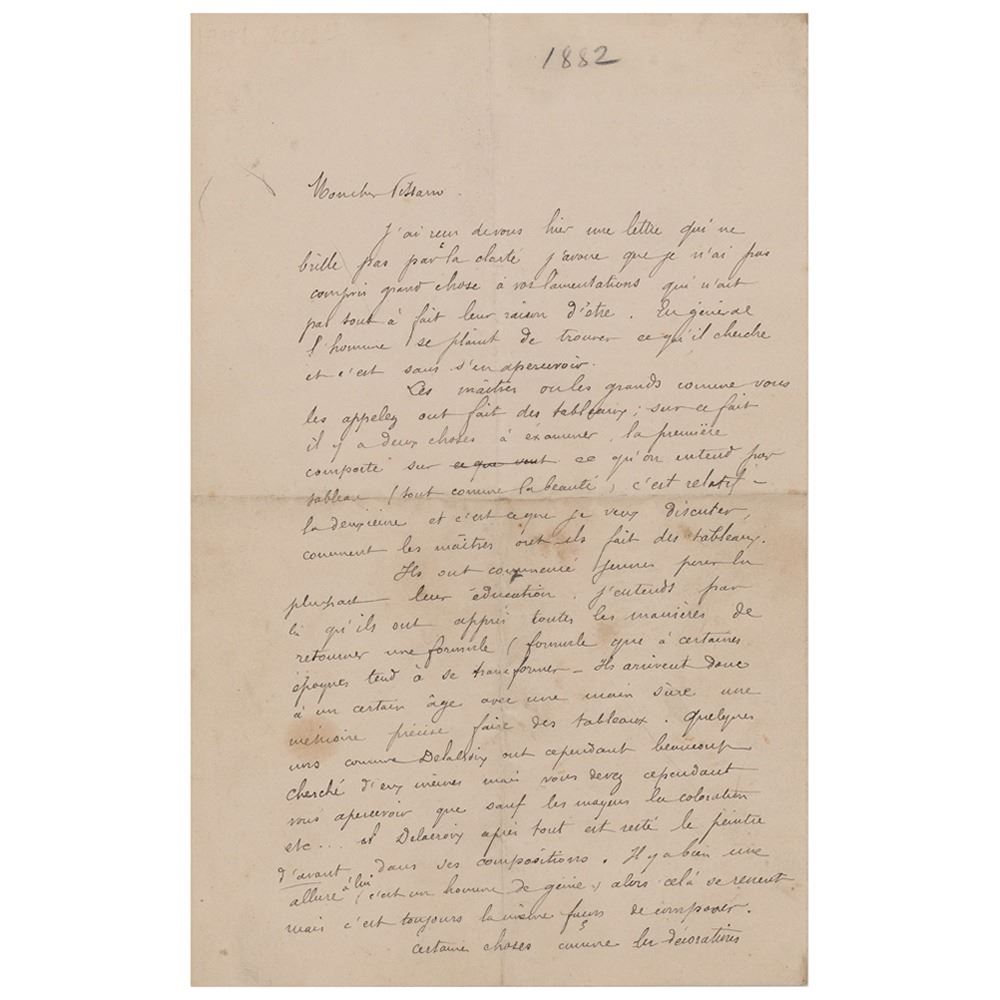 1882
Mon cher Pissarro
J'ai reçu de vous hier une lettre qui ne
brille pas par la clarté j'avoue que je n'ai pas
compris grand chose à vos lamentations qui n'ont
pas tout à fait leur raison d'être. En général
l'homme se plaint de trouver ce qu'il cherche
et c'est sans s'en apercevoir.
Les maîtres ou les grands comme vous
les appelez ont fait des tableaux ; sur ce fait
il y a deux choses à examiner, la première
comporte sur ce que veut ce qu'on entend par
tableau (tout comme la beauté) c'est relatif -
la deuxième et c'est ce que je veux discuter,
comment les maîtres ont-ils fait des tableaux.
Ils ont commencé jeunes pour la
plupart leur éducation, j'entends par
là qu'ils ont appris toutes les manières de
retourner une formule (formule que à certaines
époques tend à se transformer - Ils arrivent donc
à un certain âge avec une main sûre une
mémoire précise faire des tableaux. Quelques
uns comme Delacroix ont cependant beaucoup
cherché d'eux mêmes mais vous devez cependant
vous apercevoir que sauf les moyens la coloration
etc... Delacroix après tout est resté le peintre
d'avant dans ses compositions. Il y a bien une
allure à lui (c'est un homme de génie) alors celà se ressent
mais c'est toujours la même façon de composer.
Certaines choses comme les décorations